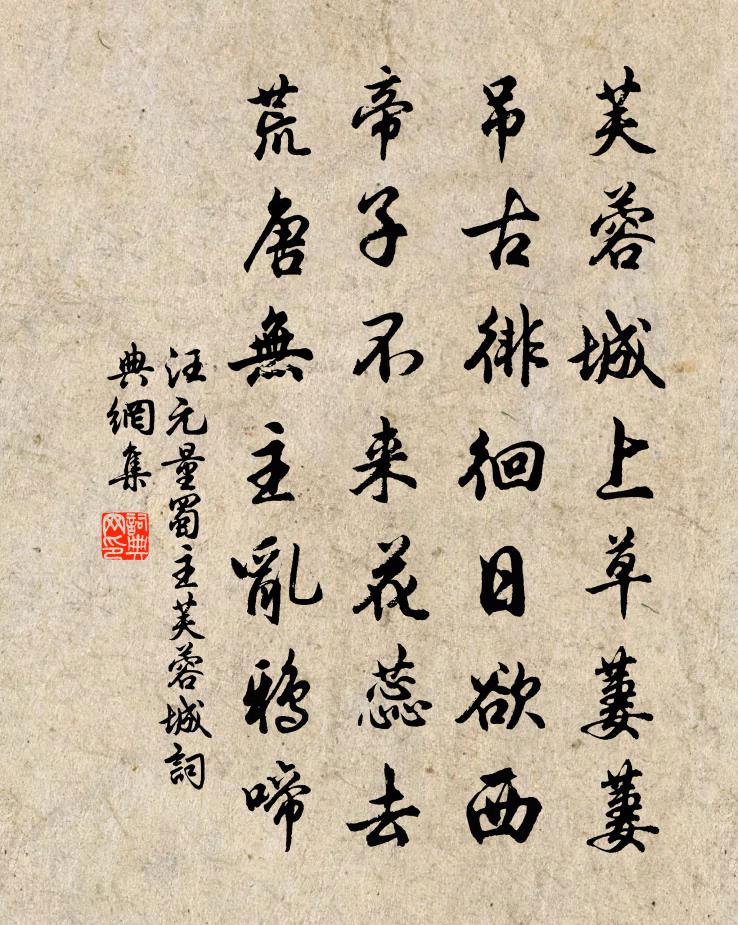 芙蓉城上草萋萋
吊古徘徊日欲西
帝子不来花蕊去
荒唐無主亂鴉啼
汪元量蜀主芙蓉城詞
典網集
詞典
网印